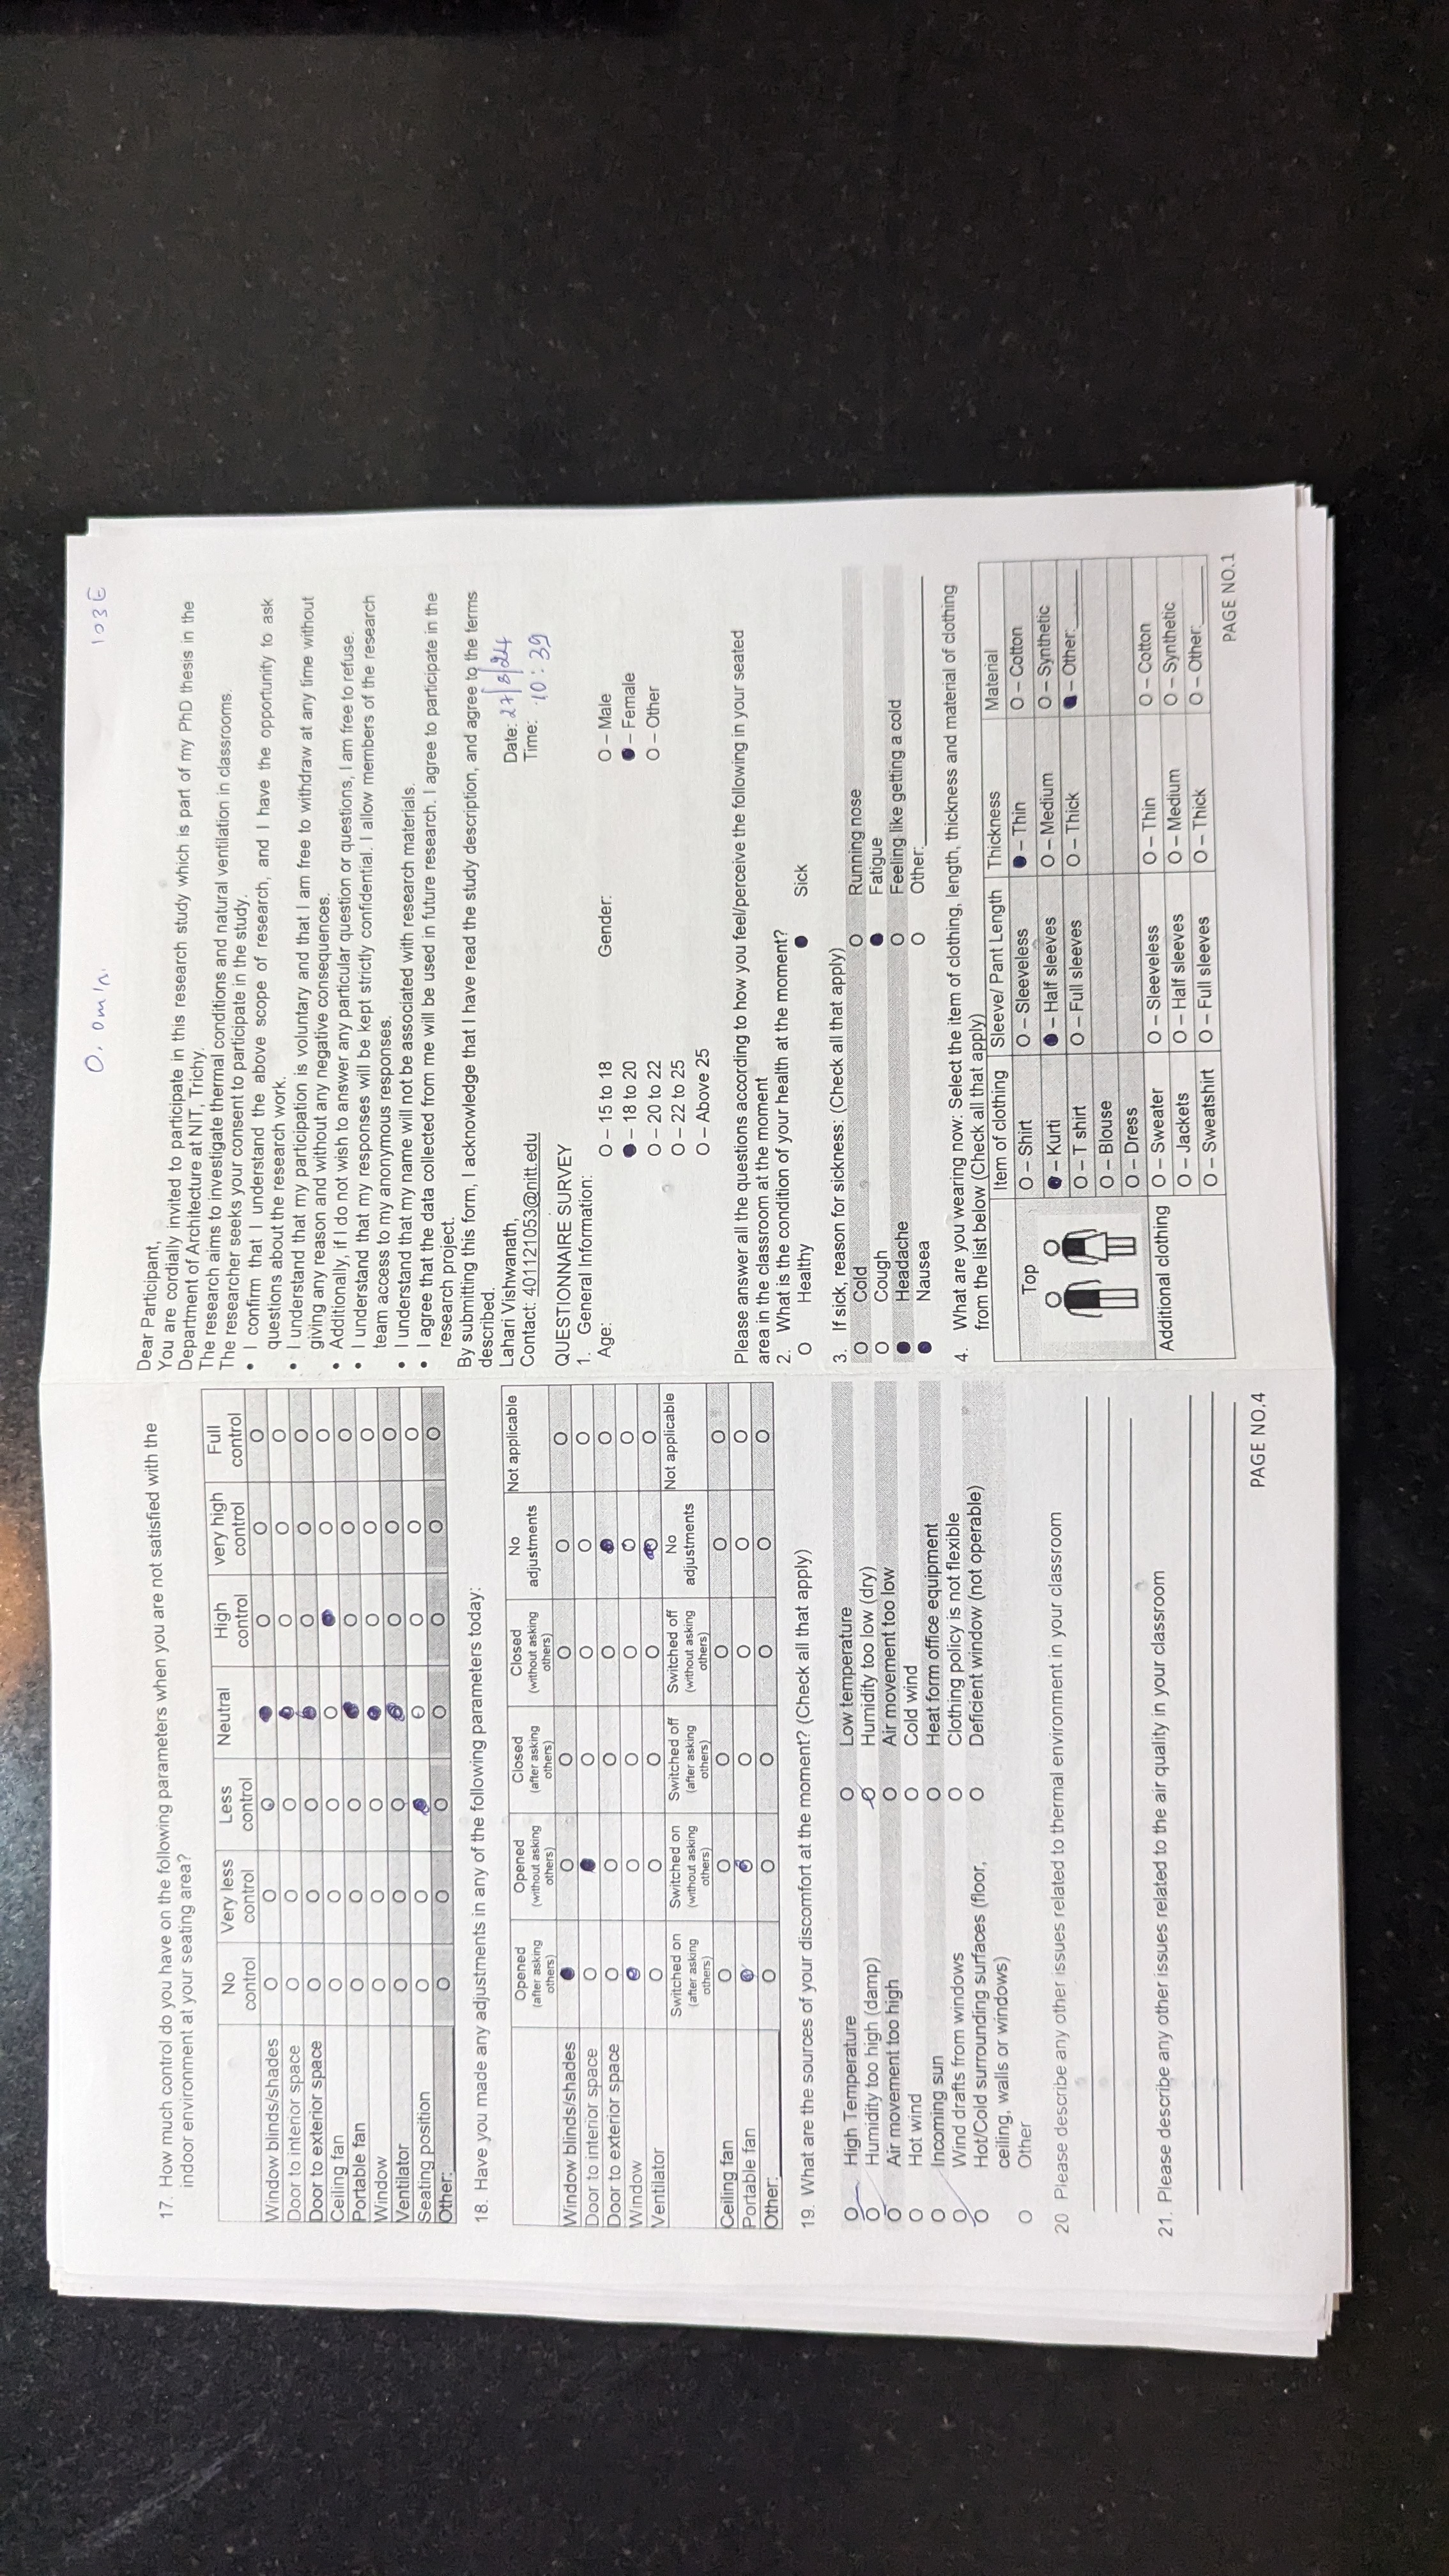 17. How much control do you have on the following parameters when you are not satisfied with the
indoor environment at your seating area?
No control Very less control Less control Neutral High control very high control Full control
Window blinds/shades O O O ● O O O
Door to interior space O O O ● O O O
Door to exterior space O O O ● O O O
Ceiling fan O O O O ● O O
Portable fan O O O ● O O O
Window O O O ● O O O
Ventilator O O O ● O O O
Seating position O O ● O O O O
Other: O O O O O O O
18. Have you made any adjustments in any of the following parameters today:
Opened (after asking others) Opened (without asking others) Closed (after asking others) Closed (without asking others) No adjustments Not applicable
Window blinds/shades ● O O O O O
Door to interior space O ● O O O O
Door to exterior space O O O O ● O
Window ● O O O O O
Ventilator O O O O ● O
Switched on (after asking others) Switched on (without asking others) Switched off (after asking others) Switched off (without asking others) No adjustments Not applicable
Ceiling fan O O O O O O
Portable fan O O O O O O
Other: O O O O O O
19. What are the sources of your discomfort at the moment? (Check all that apply)
O High Temperature O Low temperature
O Humidity too high (damp) O Humidity too low (dry)
O Air movement too high O Air movement too low
O Hot wind O Cold wind
O Incoming sun O Heat form office equipment
O Wind drafts from windows O Clothing policy is not flexible
O Hot/Cold surrounding surfaces (floor, O Deficient window (not operable)
ceiling, walls or windows)
O Other
20 Please describe any other issues related to thermal environment in your classroom
21. Please describe any other issues related to the air quality in your classroom
PAGE NO.4
103E
Dear Participant,
You are cordially invited to participate in this research study which is part of my PhD thesis in the
Department of Architecture at NIT, Trichy.
The research aims to investigate thermal conditions and natural ventilation in classrooms.
The researcher seeks your consent to participate in the study.
• I confirm that I understand the above scope of research, and I have the opportunity to ask
questions about the research work.
• I understand that my participation is voluntary and that I am free to withdraw at any time without
giving any reason and without any negative consequences.
• Additionally, if I do not wish to answer any particular question or questions, I am free to refuse.
• I understand that my responses will be kept strictly confidential. I allow members of the research
team access to my anonymous responses.
• I understand that my name will not be associated with research materials.
• I agree that the data collected from me will be used in future research. I agree to participate in the
research project.
By submitting this form, I acknowledge that I have read the study description, and agree to the terms
described.
Lahari Vishwanath, Date: 27/8/24
Contact: 401121053@nitt.edu Time: 10:39
QUESTIONNAIRE SURVEY
1. General Information:
Age: O – 15 to 18 Gender: O – Male
● – 18 to 20 ● – Female
O – 20 to 22 O – Other
O – 22 to 25
O – Above 25
Please answer all the questions according to how you feel/perceive the following in your seated
area in the classroom at the moment
2. What is the condition of your health at the moment?
O Healthy ● Sick
3. If sick, reason for sickness: (Check all that apply)
O Cold O Running nose
O Cough ● Fatigue
● Headache O Feeling like getting a cold
● Nausea O Other:
4. What are you wearing now: Select the item of clothing, length, thickness and material of clothing
from the list below (Check all that apply)
Item of clothing Sleeve/ Pant Length Thickness Material
Top O – Shirt O – Sleeveless ● – Thin O – Cotton
● – Kurti ● – Half sleeves O – Medium O – Synthetic
O – T shirt O – Full sleeves O – Thick ● – Other:
O – Blouse
O – Dress
Additional clothing O – Sweater O – Sleeveless O – Thin O – Cotton
O – Jackets O – Half sleeves O – Medium O – Synthetic
O – Sweatshirt O – Full sleeves O – Thick O – Other:
PAGE NO.1